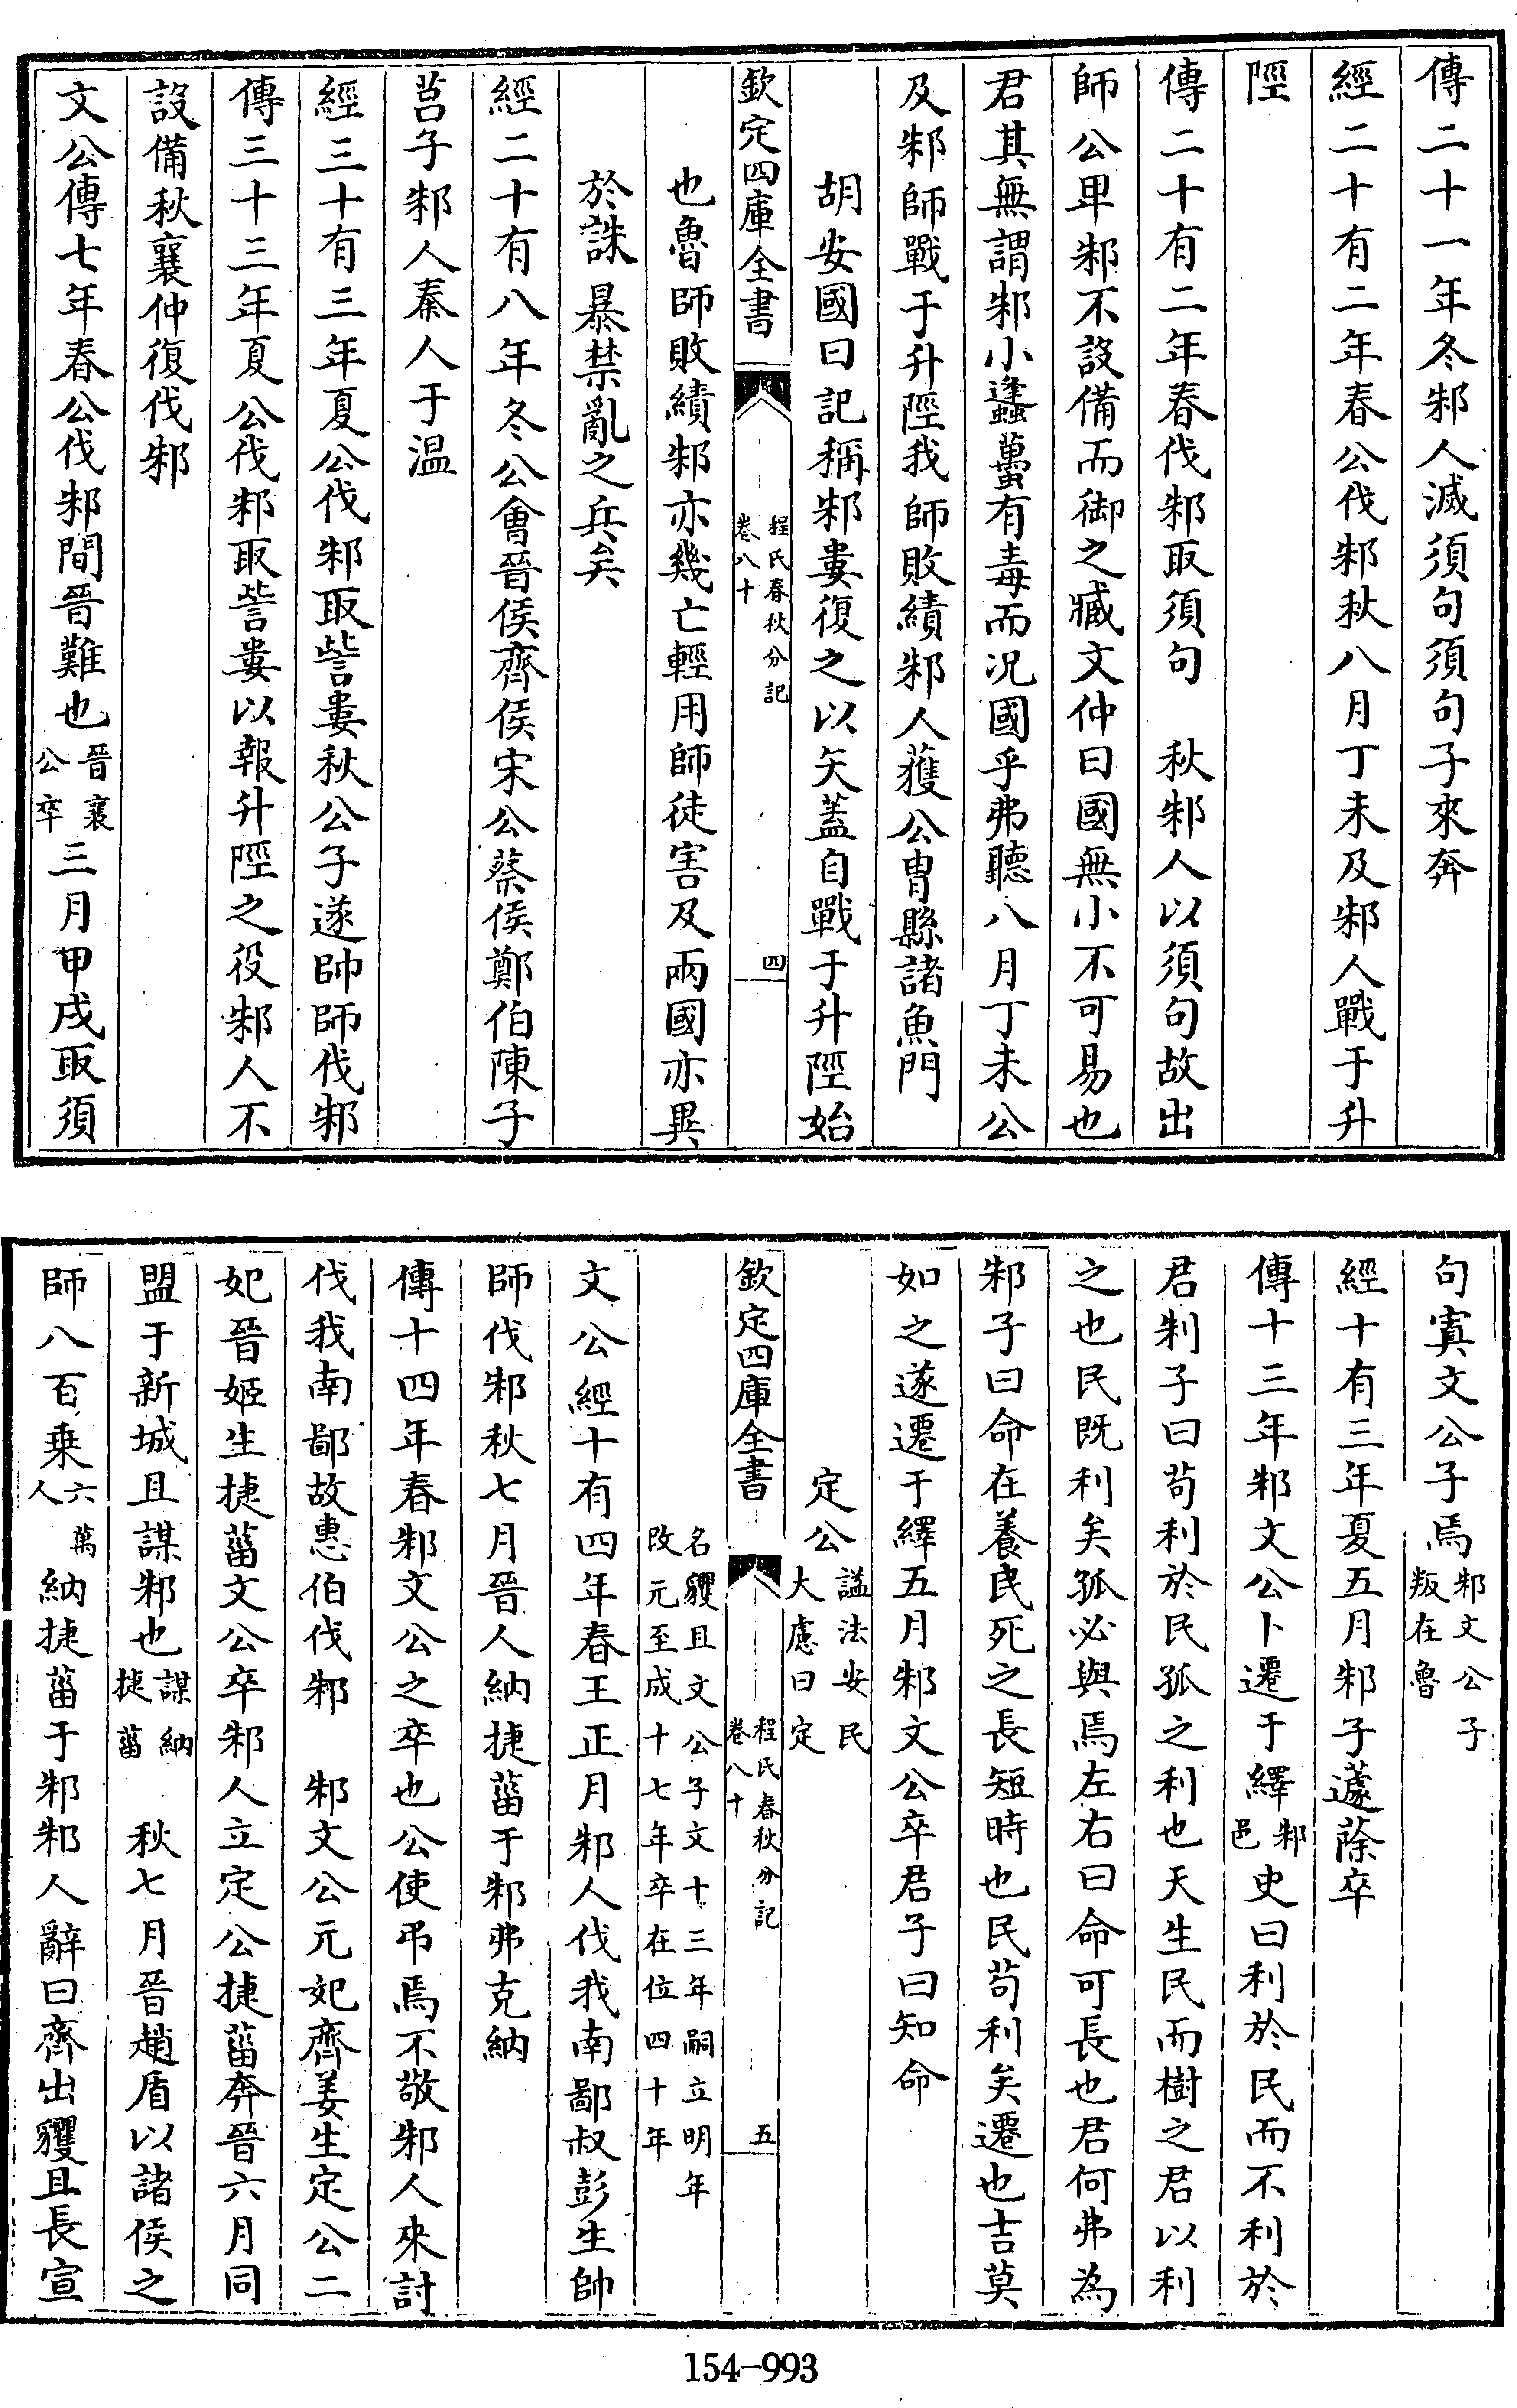 傳二十一年冬邾人滅須句須句子來奔
經二十有二年春公伐邾秋八月丁未及邾人戰于升
陘
傳二十有二年春伐邾取須句　秋邾人以須句故出
師公卑邾不設備而御之臧文仲曰國無小不可易也
君其無謂邾小蠭蠆有毒而况國乎弗聽八月丁未公
及邾師戰于升陘我師敗績邾人獲公胄縣諸魚門
胡安國曰記稱邾婁復之以矢蓋自戰于升陘始
欽定四庫全書
程氏春秋分記
卷八十
四
也魯師敗績邾亦幾亡輕用師徒害及兩國亦異
於誅暴禁亂之兵矣
經二十有八年冬公會晉侯齊侯宋公蔡侯鄭伯陳子
莒子邾人秦人于温
經三十有三年夏公伐邾取訾婁秋公子遂帥師伐邾
傳三十三年夏公伐邾取訾婁以報升陘之役邾人不
設備秋襄仲復伐邾
文公傳七年春公伐邾間晉難也晉襄公卒三月甲戌取須
句寘文公子焉邾文公子叛在魯
經十有三年夏五月邾子蘧蒢卒
傳十三年邾文公卜遷于繹邾邑史曰利於民而不利於
君邾子曰苟利於民孤之利也天生民而樹之君以利
之也民既利矣孤必與焉左右曰命可長也君何弗為
邾子曰命在養民死之長短時也民苟利矣遷也吉莫
如之遂遷于繹五月邾文公卒君子曰知命
定公諡法安民大慮曰定
欽定四庫全書
程氏春秋分記
卷八十
五
名貜且文公子文十三年嗣立明年
改元至成十七年卒在位四十年
文公經十有四年春王正月邾人伐我南鄙叔彭生帥
師伐邾秋七月晉人納捷菑于邾弗克納
傳十四年春邾文公之卒也公使弔焉不敬邾人來討
伐我南鄙故惠伯伐邾　邾文公元妃齊姜生定公二
妃晉姬生捷菑文公卒邾人立定公捷菑奔晉六月同
盟于新城且謀邾也謀納捷菑　秋七月晉趙盾以諸侯之
師八百乗六萬人納捷菑于邾邾人辭曰齊出貜且長宣
154-993